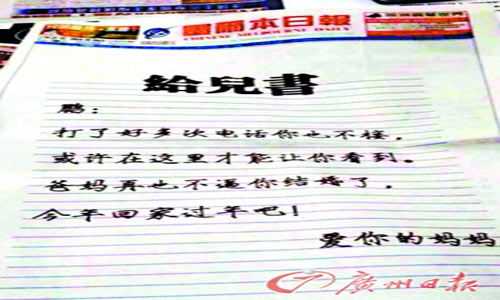 墨爾本日報
CHINESE MELBOURNE DAILY
給兒書
鹏：
打了好多次电话你也不接，
或许在这里才能让你看到。
爸妈再也不逼你结婚了，
今年回家过年吧！
爱你的妈妈
廣州日报